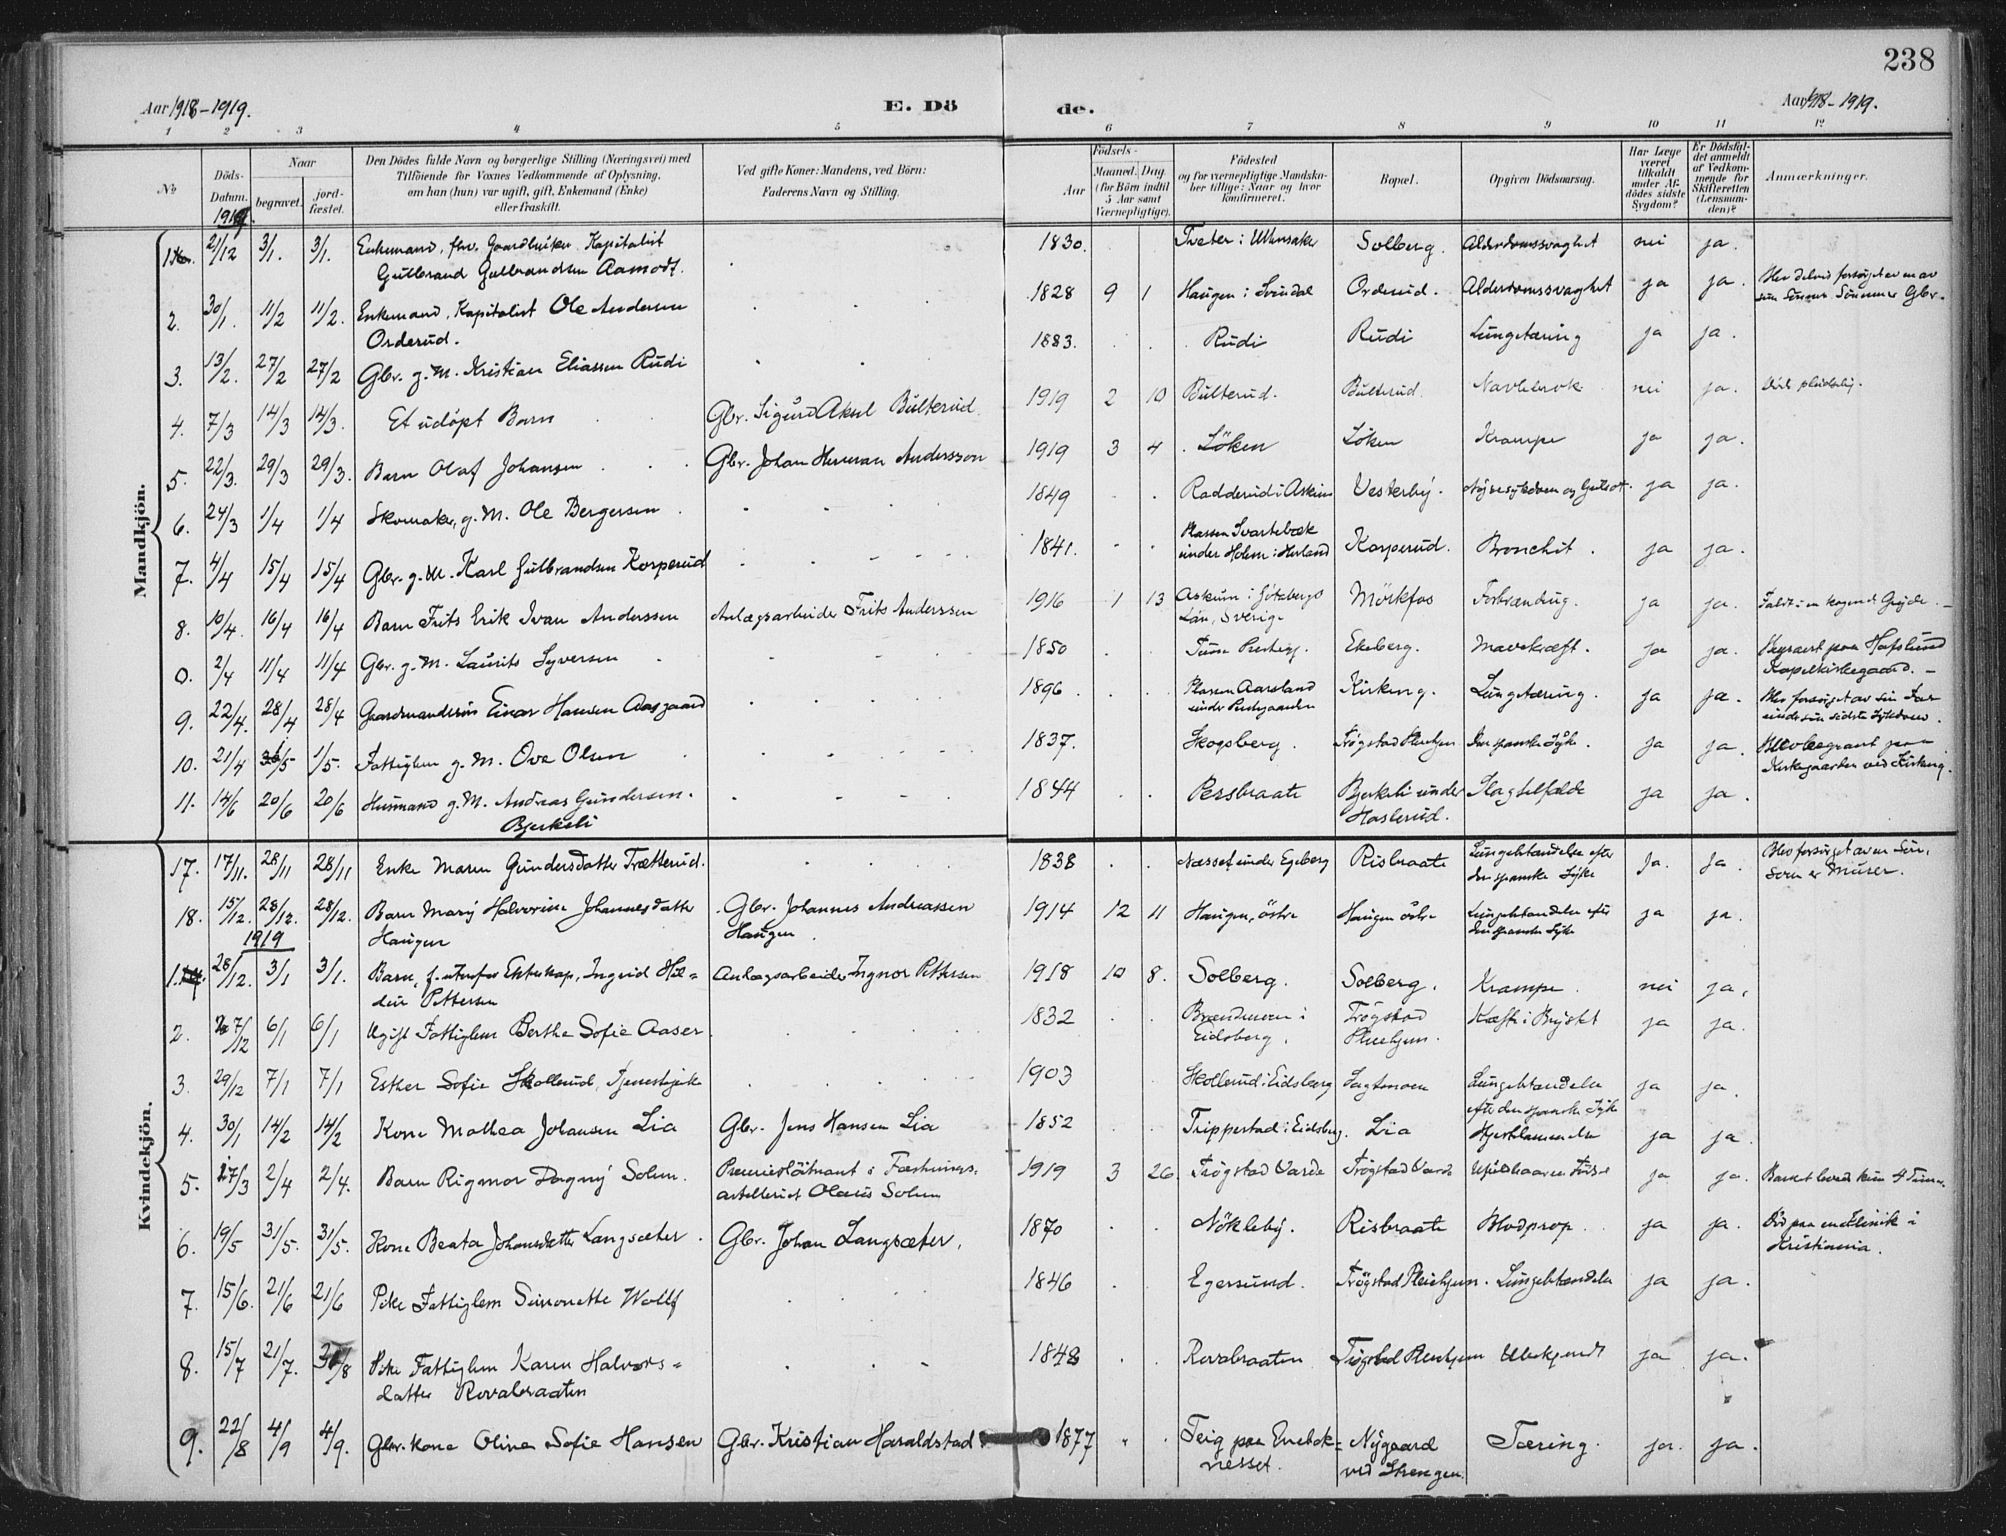 238
Aar 1918-1919.
E. Dö
de.
Aar 1918-1919.
1 2 3 4 5 6 7 8 9 10 11 12
No
Döds-
Datum.
Naar
begravet.
jord-
fæstet.
Den Dödes fulde Navn og borgerlige Stilling (Næringsvei) med
Tilföiende for Voxnes Vedkommende af Oplysning,
om han (hun) var ugift, gift, Enkemand (Enke)
eller fraskilt.
Ved gifte Koner: Mandens, ved Börn:
Faderens Navn og Stilling.
Födsels-
Aar
Maaned.
Dag.
(for Börn indtil
5 Aar samt
Værnepligtige).
Födested
og for værnepligtige Mandska-
ber tillige: Naar og hvor
konfirmeret.
Bopæl.
Opgiven Dödsaarsag.
Har Læge
været
tilkaldt
under Af-
dödes sidste
Sygdom?
Er Dödsfal-
det anmeldt
af Vedkom-
mende for
Skifteretten
(Lensman-
den)?
Anmærkninger.
Mandkjön.
1919.
1. 21/12 3/1. 3/1. Enkemand, fhv. Gaardbruker Kapitalist 1830. Tveter i Ullensaker Solberg. Alderdomssvaghet nei ja.
Gulbrand Gulbrandsen Aamodt.
2. 30/1. 11/2 11/2. Enkemand, Kapitalist Ole Andersen 1828 9 1 Haugen i Svindal Orderud. Alderdomssvaghet ja ja. Blev delvis forsørget av en av
Orderud. sine Sønner Gbr.
3. 13/2. 27/2 27/2 Gbr. g. M. Kristian Eliassen Rudi 1883. Rudi Rudi Lungetæring ja ja.
4. 7/3 14/3 14/3. Et udöpt Barn Gbr. Sigurd Aksel Bulterud 1919 2 10 Bulterud. Bulterud. Navlebrok nei ja. Död pludselig.
5. 22/3. 29/3 29/3. Barn Olaf Johansen Gbr. Johan Herman Andersson 1919 3 4 Löken Löken Krampe ja ja.
6. 24/3 1/4 1/4 Skomaker, g. M. Ole Bergersen 1849 Radderud i Askim Vesterby. Nyresykdom og Gulsot. ja ja.
7. 4/4 15/4 15/4 Gbr. g. M. Karl Gulbrandsen Korperud 1841. Plassen Svartebæk Korperud. Bronchit. ja ja.
under Holm i Herland
8. 10/4. 16/4 16/4 Barn Frits Erik Ivan Anderssen Anlægsarbeider Frits Anderssen 1916 1 13 Askum i Götebergs Mörkfos Forbrænding. ja ja. Faldt i en kogende Gryde.
Län, Sverige
0. 2/4 11/4 11/4 Gbr. g. M. Laurits Syversen 1850 Tune Prestegj. Ekeberg. Mavekræft. ja ja. Begravet paa Hafslund
Kapelkirkegaard.
9. 22/4. 28/4 28/4 Gaardmandssön Einar Hansen Aasgaard 1896 Plassen Aarsland Kirkeng. Lungetæring. ja ja. Blev forsørget av sin Far
under Prestegaarden under sin sidste Sykdom.
10. 21/4 /5 1/5. Fattiglem g. M. Ove Olsen 1837. Skogsberg. Trögstad Pleiehjem Den spanske Syke. ja ja. Blev begravet paa
Kirkegaarden ved Kirkeng.
11. 14/6 20/6 20/6 Husmand g. M. Andreas Gundersen 1844 Persbraate Bjerkeli under Slagtilfælde ja ja.
Bjerkeli Haslerud.
Kvindekjön.
17. 17/11. 28/11 28/11 Enke Maren Gundersdatter Trætterud. 1838 Næsset under Egeberg Risbraate Lungebetændelse efter Ja. Ja. Blev forsørget av en Søn,
den spanske Syke som er Murer.
18. 15/12. 28/12. 28/12. Barn Mary Halvorine Johannesdatter Gbr. Johannes Andreassen 1914 12 11 Haugen, östre Haugen östre Lungebetændelse efter ja ja.
Haugen Haugen den spanske Syke
1919
1. 28/12. 3/1 3/1. Barn, f. utenfor Ekteskap, Ingrid Hil- Anlægsarbeider Ingnor Pettersen 1918 10 8. Solberg. Solberg. Krampe nei ja.
dur Pettersen
2. 27/12 6/1 6/1 Ugift Fattiglem Berthe Sofie Aaser 1832 Brændmoen i Trögstad Kræft i Brystet ja ja.
Eidsberg. Pleiehjem.
3. 29/12 7/1 7/1 Esther Sofie Skollerud, Tjenestepike 1903 Skollerud i Eidsberg Sagtmoen Lungebetændelse ja ja.
efter den spanske Syke
4. 30/1 14/2 14/2 Kone Mathea Johansen Lia Gbr. Jens Hansen Lia 1852 Trippestad i Eidsberg. Lia Hjertelammelse ja ja.
5. 27/3 2/4 2/4. Barn Rigmor Dagny Solum. Premierlöitnant i Fæstnings- 1919 3 26. Trögstad Varde Trögstad Varde ja ja. Barnet levede kun 4 Timer.
artilleriet Olaus Solum
6. 19/5 31/5. 31/5. Kone Beata Johansdatter Langsæter. Gbr. Johan Langsæter. 1870 Nökleby. Risbraate Blodprop. ja ja. Död paa en Klinik i
Kristiania.
7. 15/6. 21/6 21/6 Pike Fattiglem Simonette Wolff 1846 Egersund. Trögstad Pleiehjem. Lungebetændelse ja ja.
8. 15/7 21/7. /8 Pike Fattiglem Karen Halvors- 1848 Rovabraaten Trögstad Pleiehjem Ubekjendt ja ja.
datter Rovabraaten
9. 22/8 4/9 4/9. Gbr. kone Oline Sofie Hansen Gbr. Kristian Haraldstad 1877 Teig paa Enebak- Nygaard Tæring. ja. ja.
nesset. ved Strengen.